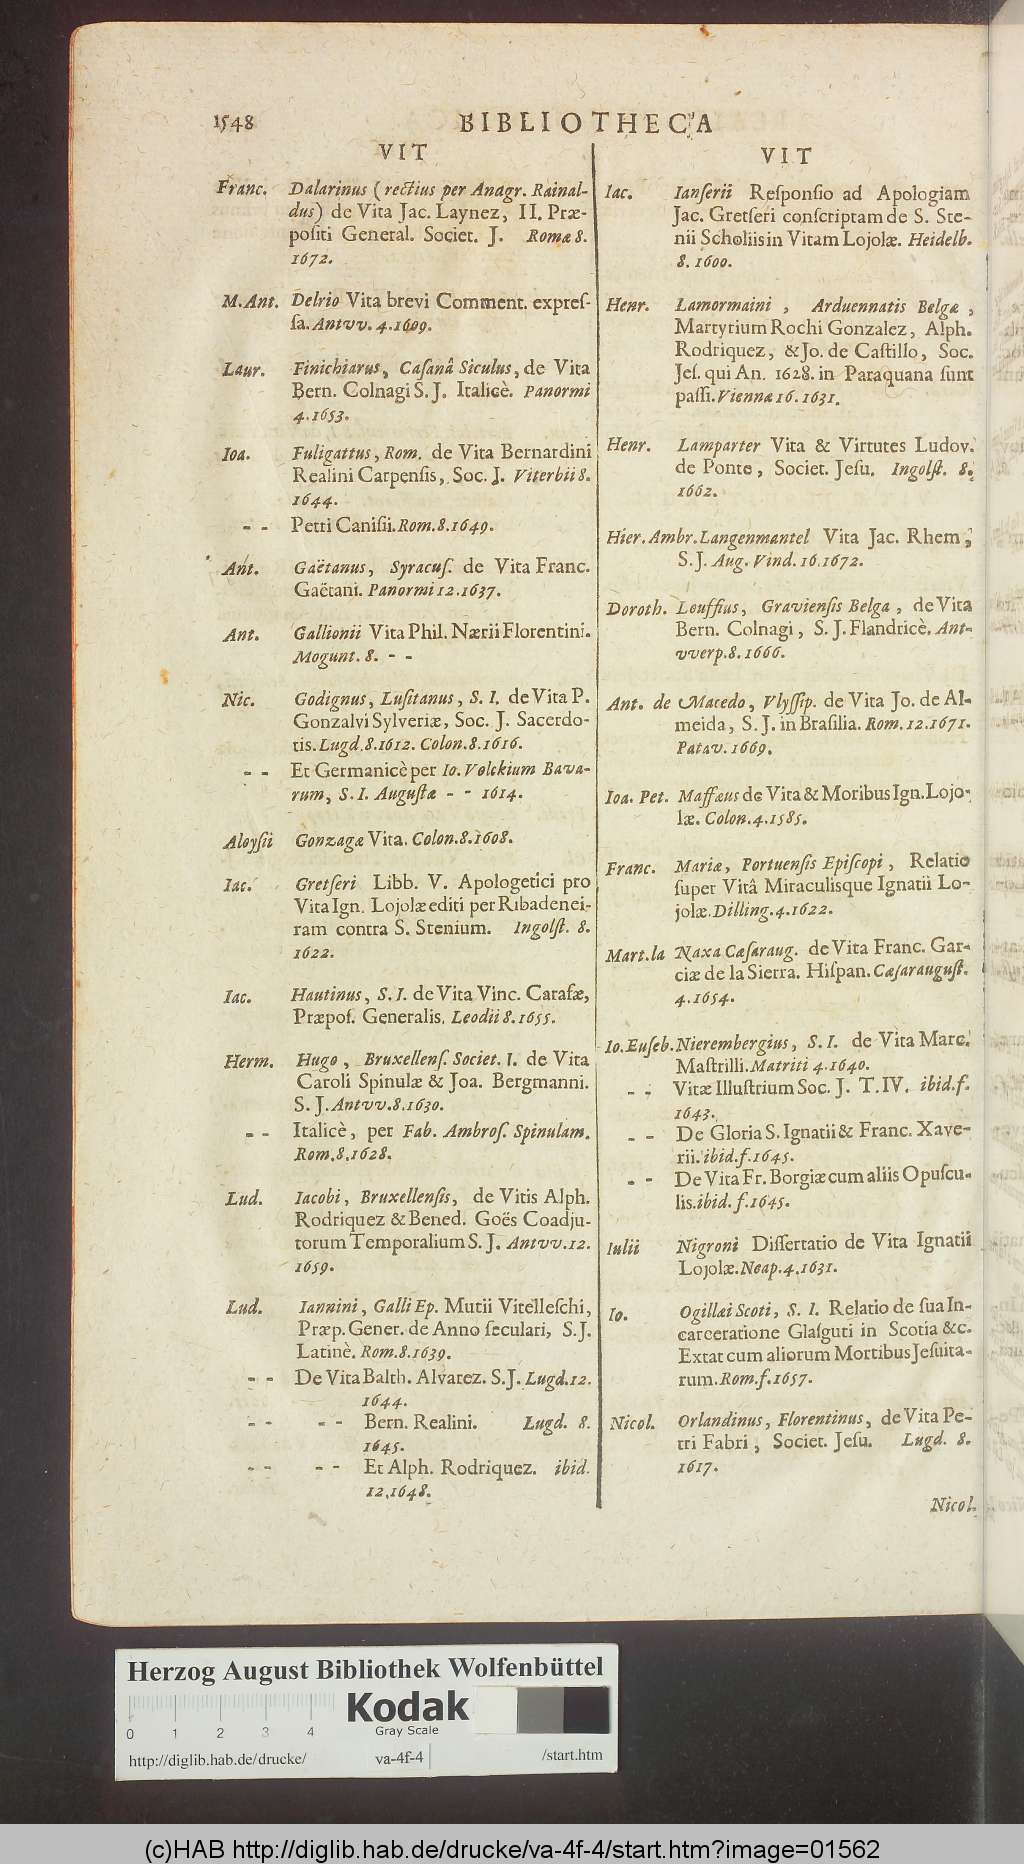 1548
BIBLIOTHECA
VIT
Franc. Dalarinus (rectius per Anagr. Rainal-
dus) de Vita Jac. Laynez, II. Præ-
positi General. Societ. J. Romæ 8.
1672.
M. Ant. Delrio Vita brevi Comment. expreſ-
ſa. Antvv. 4. 1609.
Laur. Finichiarus, Caſanâ Siculus, de Vita
Bern. Colnagi S. J. Italicè. Panormi
4. 1653.
Ioa. Fuligattus, Rom. de Vita Bernardini
Realini Carpenſis, Soc. J. Viterbii 8.
1644.
- - Petri Caniſii. Rom. 8. 1649.
Ant. Gaëtanus, Syracuſ. de Vita Franc.
Gaëtani. Panormi 12. 1637.
Ant. Gallionii Vita Phil. Nærii Florentini.
Mogunt. 8. - -
Nic. Godignus, Luſitanus, S. I. de Vita P.
Gonzalvi Sylveriæ, Soc. J. Sacerdo-
tis. Lugd. 8. 1612. Colon. 8. 1616.
- - Et Germanicè per Io. Volckium Bava-
rum, S. I. Auguſtæ - - 1614.
Aloyſii Gonzagæ Vita. Colon. 8. 1608.
Iac. Gretſeri Libb. V. Apologetici pro
Vita Ign. Lojolæ editi per Ribadenei-
ram contra S. Stenium. Ingolſt. 8.
1622.
Iac. Hautinus, S. I. de Vita Vinc. Carafæ,
Præpoſ. Generalis. Leodii 8. 1655.
Herm. Hugo, Bruxellenſ. Societ. I. de Vita
Caroli Spinulæ & Joa. Bergmanni.
S. J. Antvv. 8. 1630.
- - Italicè, per Fab. Ambroſ. Spinulam.
Rom. 8. 1628.
Lud. Iacobi, Bruxellenſis, de Vitis Alph.
Rodriquez & Bened. Goës Coadju-
torum Temporalium S. J. Antvv. 12.
1659.
Lud. Iannini, Galli Ep. Mutii Vitelleſchi,
Præp. Gener. de Anno ſeculari, S. J.
Latinè. Rom. 8. 1639.
- - De Vita Balth. Alvarez. S. J. Lugd. 12.
1644.
- - - - Bern. Realini. Lugd. 8.
1645.
- - - - Et Alph. Rodriquez. ibid.
12. 1648.
VIT
Iac. Ianſerii Reſponſio ad Apologiam
Jac. Gretſeri conſcriptam de S. Ste-
nii Scholiis in Vitam Lojolæ. Heidelb.
8. 1600.
Henr. Lamormaini, Arduennatis Belgæ,
Martyrium Rochi Gonzalez, Alph.
Rodriquez, & Jo. de Caſtillo, Soc.
Jeſ. qui An. 1628. in Paraquana ſunt
paſſi. Viennæ 16. 1631.
Henr. Lamparter Vita & Virtutes Ludov.
de Ponte, Societ. Jeſu. Ingolſt. 8.
1662.
Hier. Ambr. Langenmantel Vita Jac. Rhem,
S. J. Aug. Vind. 16. 1672.
Doroth. Leuffius, Gravienſis Belga, de Vita
Bern. Colnagi, S. J. Flandricè. Ant-
vverp. 8. 1666.
Ant. de Macedo, Vlyſſip. de Vita Jo. de Al-
meida, S. J. in Braſilia. Rom. 12. 1671.
Patav. 1669.
Ioa. Pet. Maffæus de Vita & Moribus Ign. Lojo-
læ. Colon. 4. 1585.
Franc. Mariæ, Portuenſis Epiſcopi, Relatio
ſuper Vitâ Miraculisque Ignatii Lo-
jolæ. Dilling. 4. 1622.
Mart. la Naxa Cæſaraug. de Vita Franc. Gar-
ciæ de la Sierra. Hiſpan. Cæſarauguſt.
4. 1654.
Io. Euſeb. Nierembergius, S. I. de Vita Marc.
Maſtrilli. Matriti 4. 1640.
- - Vitæ Illuſtrium Soc. J. T. IV. ibid. f.
1643.
- - De Gloria S. Ignatii & Franc. Xave-
rii. ibid. f. 1645.
- - De Vita Fr. Borgiæ cum aliis Opuſcu-
lis. ibid. f. 1645.
Iulii Nigroni Diſſertatio de Vita Ignatii
Lojolæ. Neap. 4. 1631.
Io. Ogillæi Scoti, S. I. Relatio de ſua In-
carceratione Glaſguti in Scotia &c.
Extat cum aliorum Mortibus Jeſuita-
rum. Rom. f. 1657.
Nicol. Orlandinus, Florentinus, de Vita Pe-
tri Fabri, Societ. Jeſu. Lugd. 8.
1617.
Nicol.
Herzog August Bibliothek Wolfenbüttel
0 1 2 3 4
Kodak
Gray Scale
http://diglib.hab.de/drucke/ va-4f-4 /start.htm
(c)HAB http://diglib.hab.de/drucke/va-4f-4/start.htm?image=01562